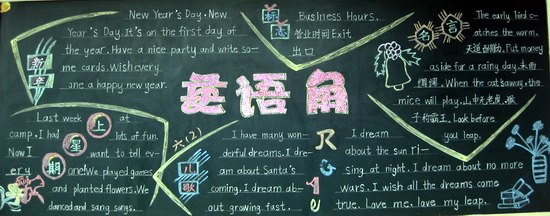 New Year's Day. New
Year's Day. It's on the first day of
the year. Have a nice party and write so-
me cards. Wish every
one a happy new year.
新年
标志
Business Hours.
营业时间 Exit
出口
名言
The early bird c-
atches the worm.
天道酬勤. Put money
aside for a rainy day. 未雨
绸缪. When the cat's away, the
mice will play. 山中无老虎, 猴
子称霸王. Look before
you leap.
英语角
上星期
Last week at
camp. I had lots of fun.
Now I want to tell ev-
ery one. We played games
and planted flowers. We
danced and sang songs.
六(2)
儿歌
I have many won-
derful dreams. I dre-
am about Santa's
coming. I dream ab-
out growing fast.
I dream
about the sun ri-
sing at night. I dream about no more
wars. I wish all the dreams come
true. Love me. love my leap.